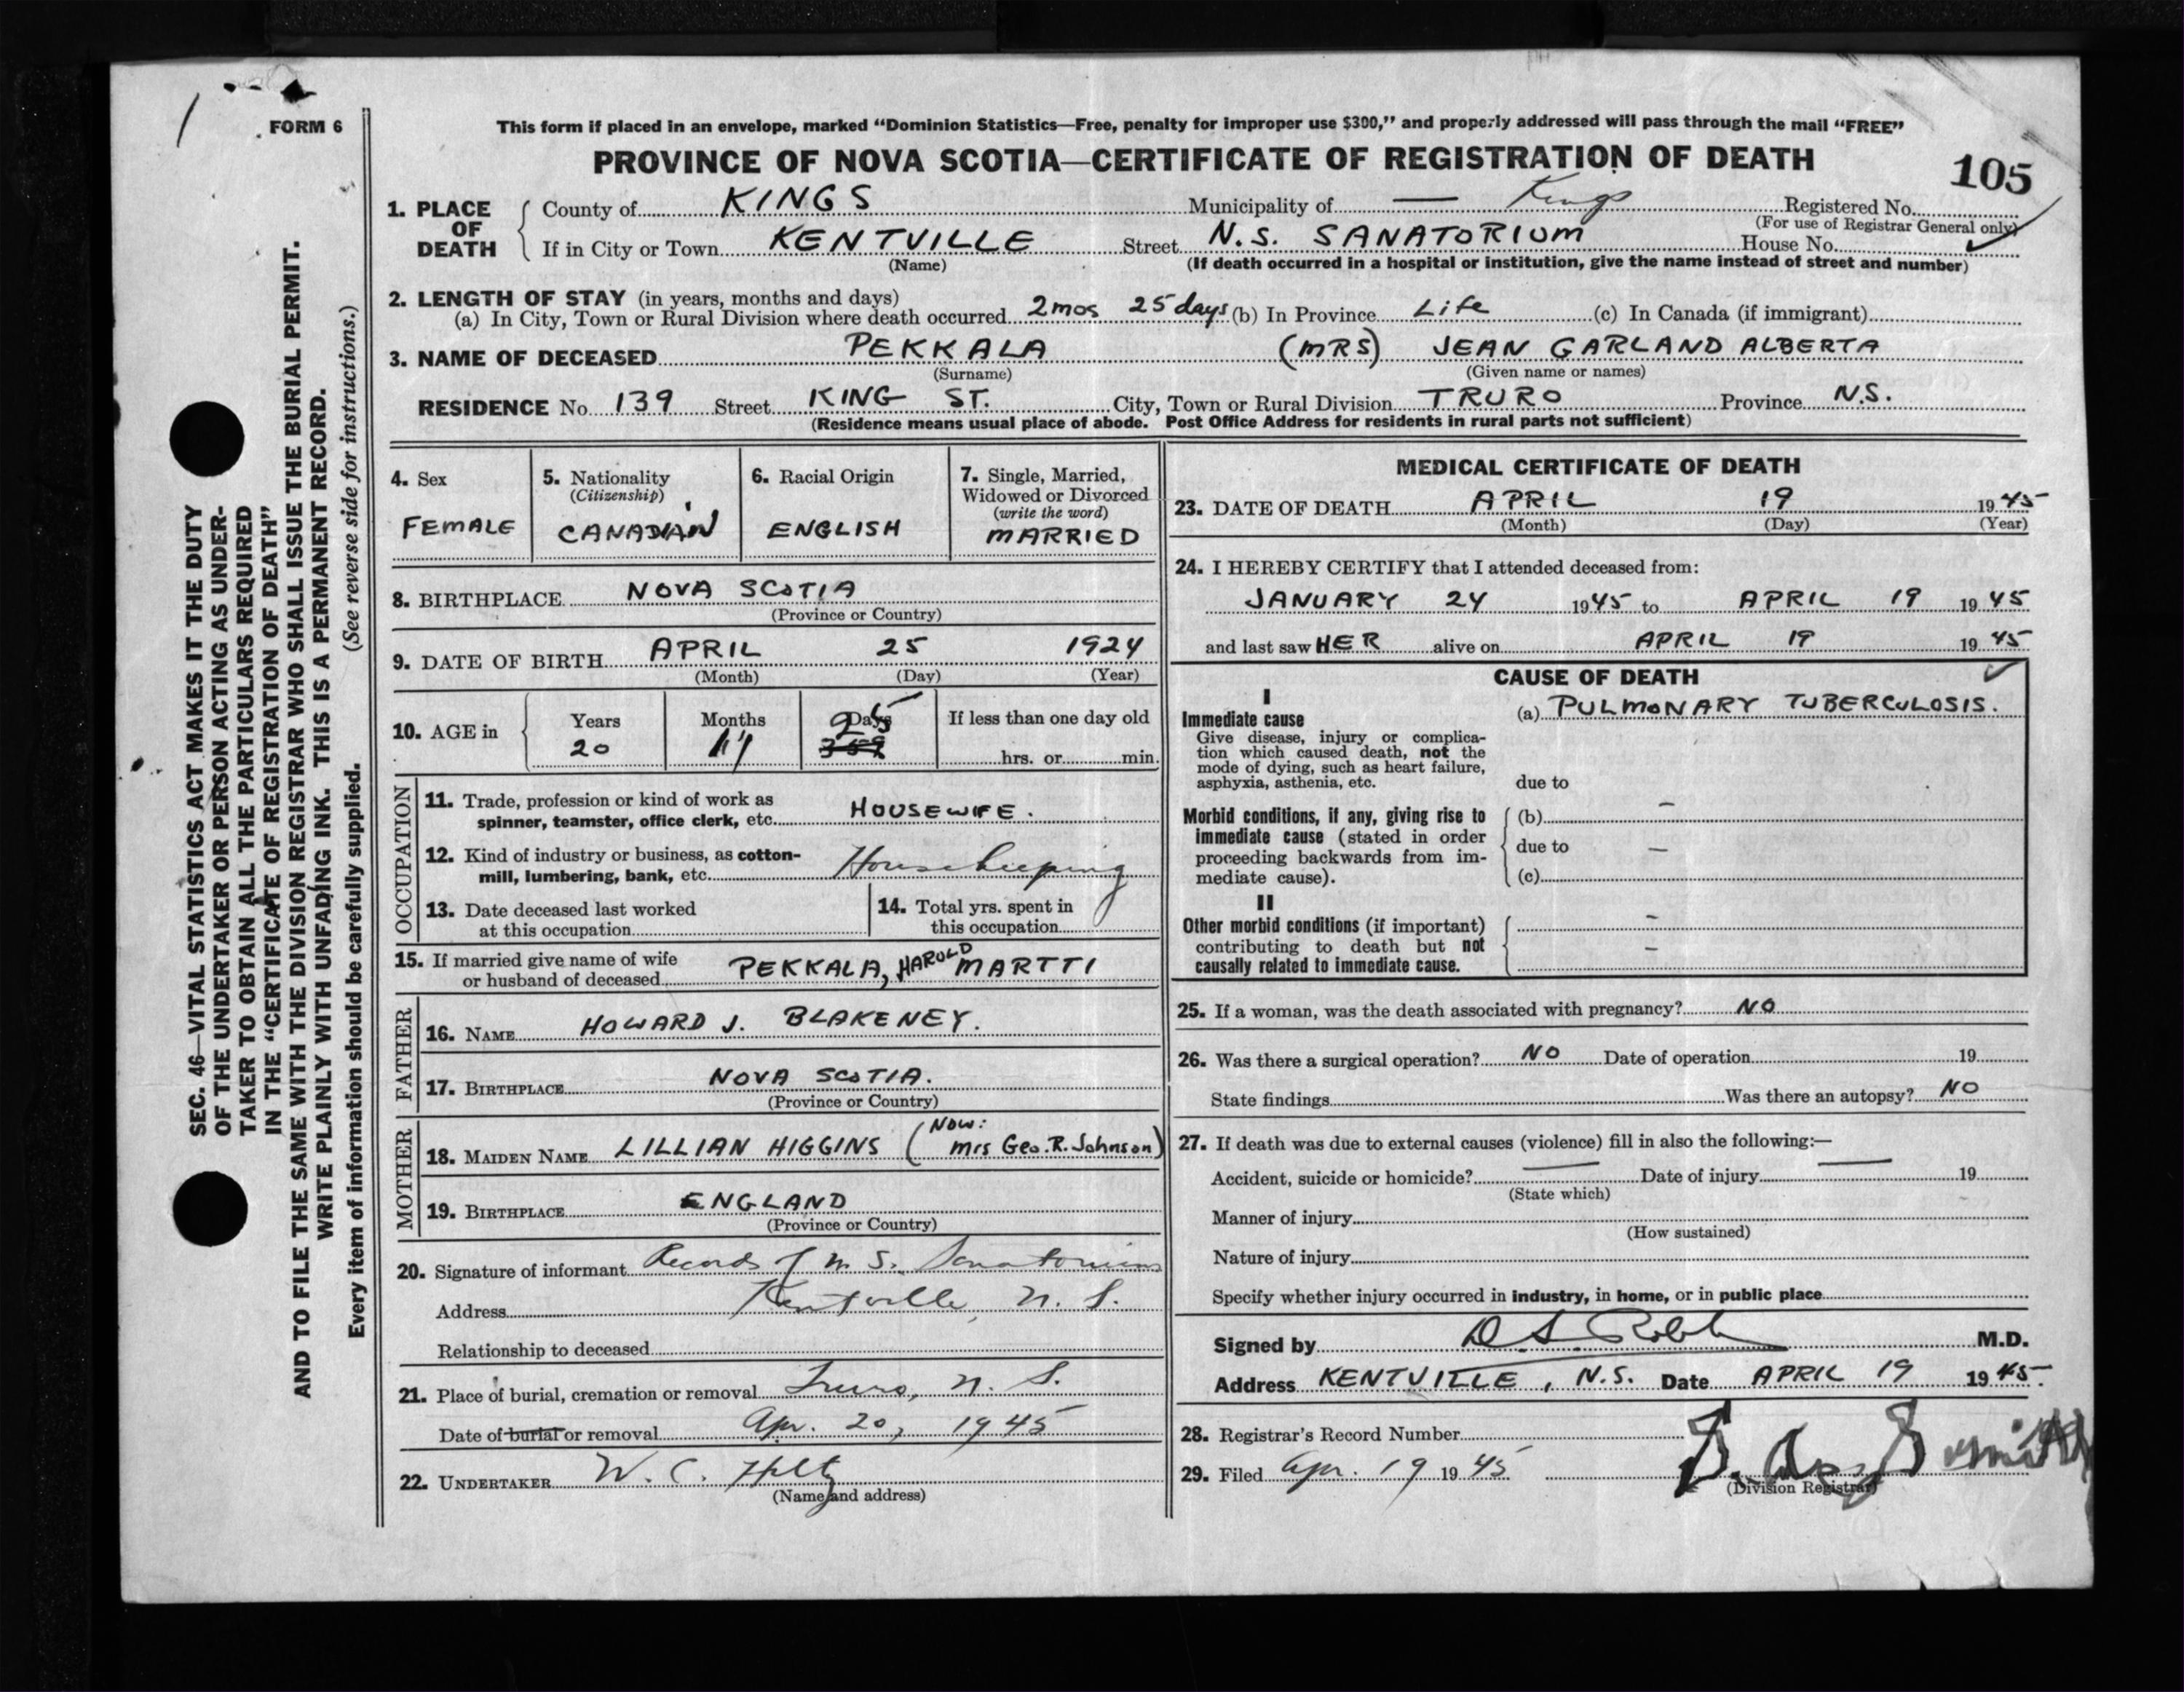 FORM 6
This form if placed in an envelope, marked “Dominion Statistics—Free, penalty for improper use $300,” and properly addressed will pass through the mail “FREE”
PROVINCE OF NOVA SCOTIA—CERTIFICATE OF REGISTRATION OF DEATH
105
1. PLACE OF DEATH
County of KINGS Municipality of — Kings Registered No.
(For use of Registrar General only)
If in City or Town KENTVILLE Street N.S. SANATORIUM House No.
(Name) (If death occurred in a hospital or institution, give the name instead of street and number)
2. LENGTH OF STAY (in years, months and days)
(a) In City, Town or Rural Division where death occurred 2 mos 25 days (b) In Province Life (c) In Canada (if immigrant)
3. NAME OF DECEASED PEKKALA (MRS) JEAN GARLAND ALBERTA
(Surname) (Given name or names)
RESIDENCE No. 139 Street KING ST. City, Town or Rural Division TRURO Province N.S.
(Residence means usual place of abode. Post Office Address for residents in rural parts not sufficient)
4. Sex
FEMALE
5. Nationality
(Citizenship)
CANADIAN
6. Racial Origin
ENGLISH
7. Single, Married,
Widowed or Divorced
(write the word)
MARRIED
8. BIRTHPLACE NOVA SCOTIA
(Province or Country)
9. DATE OF BIRTH APRIL 25 1924
(Month) (Day) (Year)
10. AGE in
Years Months Days If less than one day old
20 11 25 hrs. or min.
359
OCCUPATION
11. Trade, profession or kind of work as
spinner, teamster, office clerk, etc. HOUSEWIFE.
12. Kind of industry or business, as cotton-
mill, lumbering, bank, etc. Housekeeping
13. Date deceased last worked
at this occupation
14. Total yrs. spent in
this occupation
15. If married give name of wife
or husband of deceased PEKKALA, HAROLD MARTTI
FATHER
16. NAME HOWARD J. BLAKENEY.
17. BIRTHPLACE NOVA SCOTIA.
(Province or Country)
MOTHER
18. MAIDEN NAME LILLIAN HIGGINS (NOW: Mrs Geo. R. Johnson)
19. BIRTHPLACE ENGLAND
(Province or Country)
20. Signature of informant Records of N S. Sanatorium
Address Kentville, N. S.
Relationship to deceased
21. Place of burial, cremation or removal Truro, N. S.
Date of burial or removal Apr. 20, 1945
22. UNDERTAKER W. C. Hiltz
(Name and address)
MEDICAL CERTIFICATE OF DEATH
23. DATE OF DEATH APRIL 19 1945
(Month) (Day) (Year)
24. I HEREBY CERTIFY that I attended deceased from:
JANUARY 24 1945 to APRIL 19 1945
and last saw HER alive on APRIL 19 1945
CAUSE OF DEATH
I
Immediate cause (a) PULMONARY TUBERCULOSIS.
Give disease, injury or complica-
tion which caused death, not the
mode of dying, such as heart failure,
asphyxia, asthenia, etc. due to
Morbid conditions, if any, giving rise to (b) —
immediate cause (stated in order
proceeding backwards from im- due to —
mediate cause). (c)
II
Other morbid conditions (if important) —
contributing to death but not —
causally related to immediate cause.
25. If a woman, was the death associated with pregnancy? NO
26. Was there a surgical operation? NO Date of operation 19
State findings Was there an autopsy? NO
27. If death was due to external causes (violence) fill in also the following:—
Accident, suicide or homicide? — Date of injury — 19
(State which)
Manner of injury
(How sustained)
Nature of injury
Specify whether injury occurred in industry, in home, or in public place
Signed by D. S. Robb M.D.
Address KENTVILLE, N.S. Date APRIL 19 1945.
28. Registrar's Record Number
29. Filed Apr. 19 1945
(Division Registrar)
SEC. 46—VITAL STATISTICS ACT MAKES IT THE DUTY
OF THE UNDERTAKER OR PERSON ACTING AS UNDER-
TAKER TO OBTAIN ALL THE PARTICULARS REQUIRED
IN THE “CERTIFICATE OF REGISTRATION OF DEATH”
AND TO FILE THE SAME WITH THE DIVISION REGISTRAR WHO SHALL ISSUE THE BURIAL PERMIT.
WRITE PLAINLY WITH UNFADING INK. THIS IS A PERMANENT RECORD.
Every item of information should be carefully supplied. (See reverse side for instructions.)